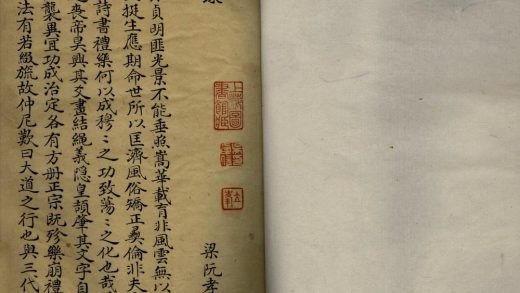 上海圖書館藏
梁阮孝
貞明匪光景不能垂照嵩華載育非風雲無以
挺生應期命世所以匡濟風俗矯正彝倫非夫
詩書禮樂何以成穆〻之功致蕩〻之化也哉
喪帝昊興其爻畫結繩義隱皇頡肇其文字自
襲異宜功成治定各有方册正宗既殄樂崩禮
法有若綴旒故仲尼歎曰大道之行也與三代